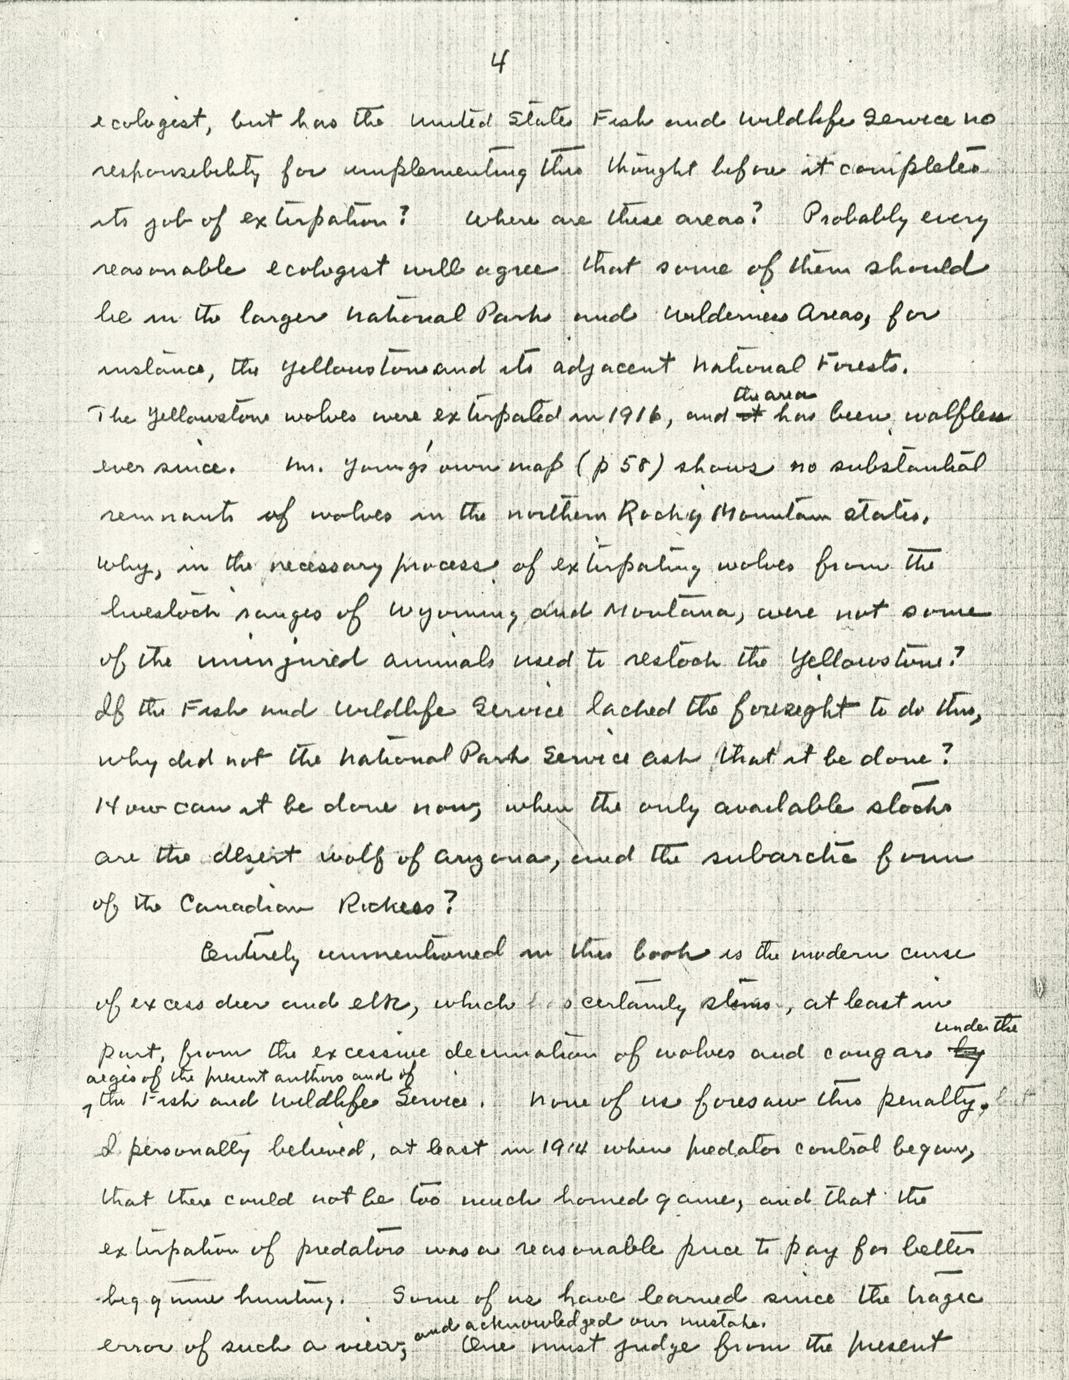 4
ecologist, but has the United States Fish and Wildlife Service no
responsibility for implementing this thought before it completes
its job of extirpation? Where are these areas? Probably every
reasonable ecologist will agree that some of them should
be in the larger National Parks and Wilderness Areas, for
instance, the Yellowstone and its adjacent National Forests.
the area
The Yellowstone wolves were extirpated in 1916, and it has been wolfless
ever since. Mr. Youngs' own map (p 58) shows no substantial
remnants of wolves in the northern Rocky Mountain states.
Why, in the necessary process of extirpating wolves from the
livestock ranges of Wyoming and Montana, were not some
of the uninjured animals used to restock the Yellowstone?
If the Fish and Wildlife Service lacked the foresight to do this,
why did not the National Park Service ask that it be done?
How can it be done now, when the only available stocks
are the desert wolf of Arizona, and the subarctic form
of the Canadian Rockies?
Entirely unmentioned in this book is the modern curse
of excess deer and elk, which certainly stems, at least in
under the
part, from the excessive decimation of wolves and cougars by
aegis of the present authors and of
the Fish and Wildlife Service. None of us foresaw this penalty.
I personally believed, at least in 1914 when predator control began,
that there could not be too much horned game, and that the
extirpation of predators was a reasonable price to pay for better
big game hunting. Some of us have learned since the tragic
and acknowledged our mistake.
error of such a view, One must judge from the present